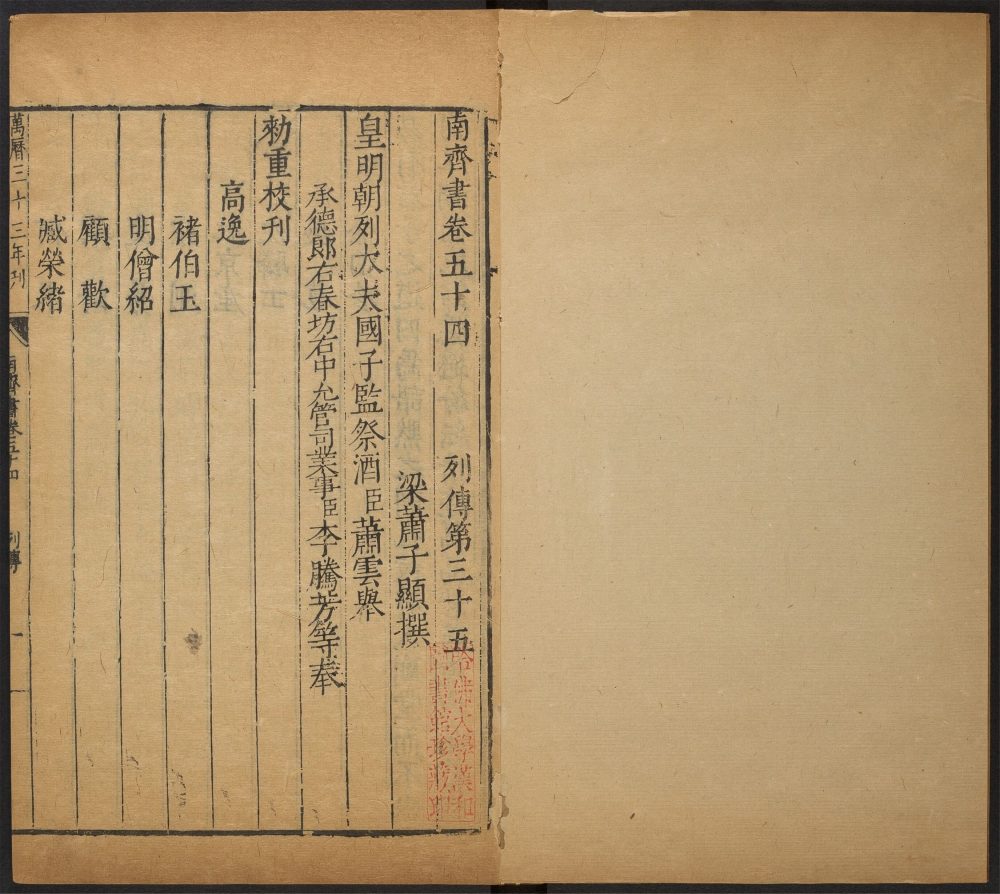 南齊書卷五十四 列傳第三十五
梁蕭子顯撰
皇明朝列大夫國子監祭酒臣蕭雲舉
承德郎右春坊右中允管司業事臣李騰芳等奉
勑重校刊
高逸
褚伯玉
明僧紹
顧歡
臧榮緒
萬曆三十三年刊
南齊書卷五十四 列傳 一
哈佛大學漢和
圖書館珍藏印